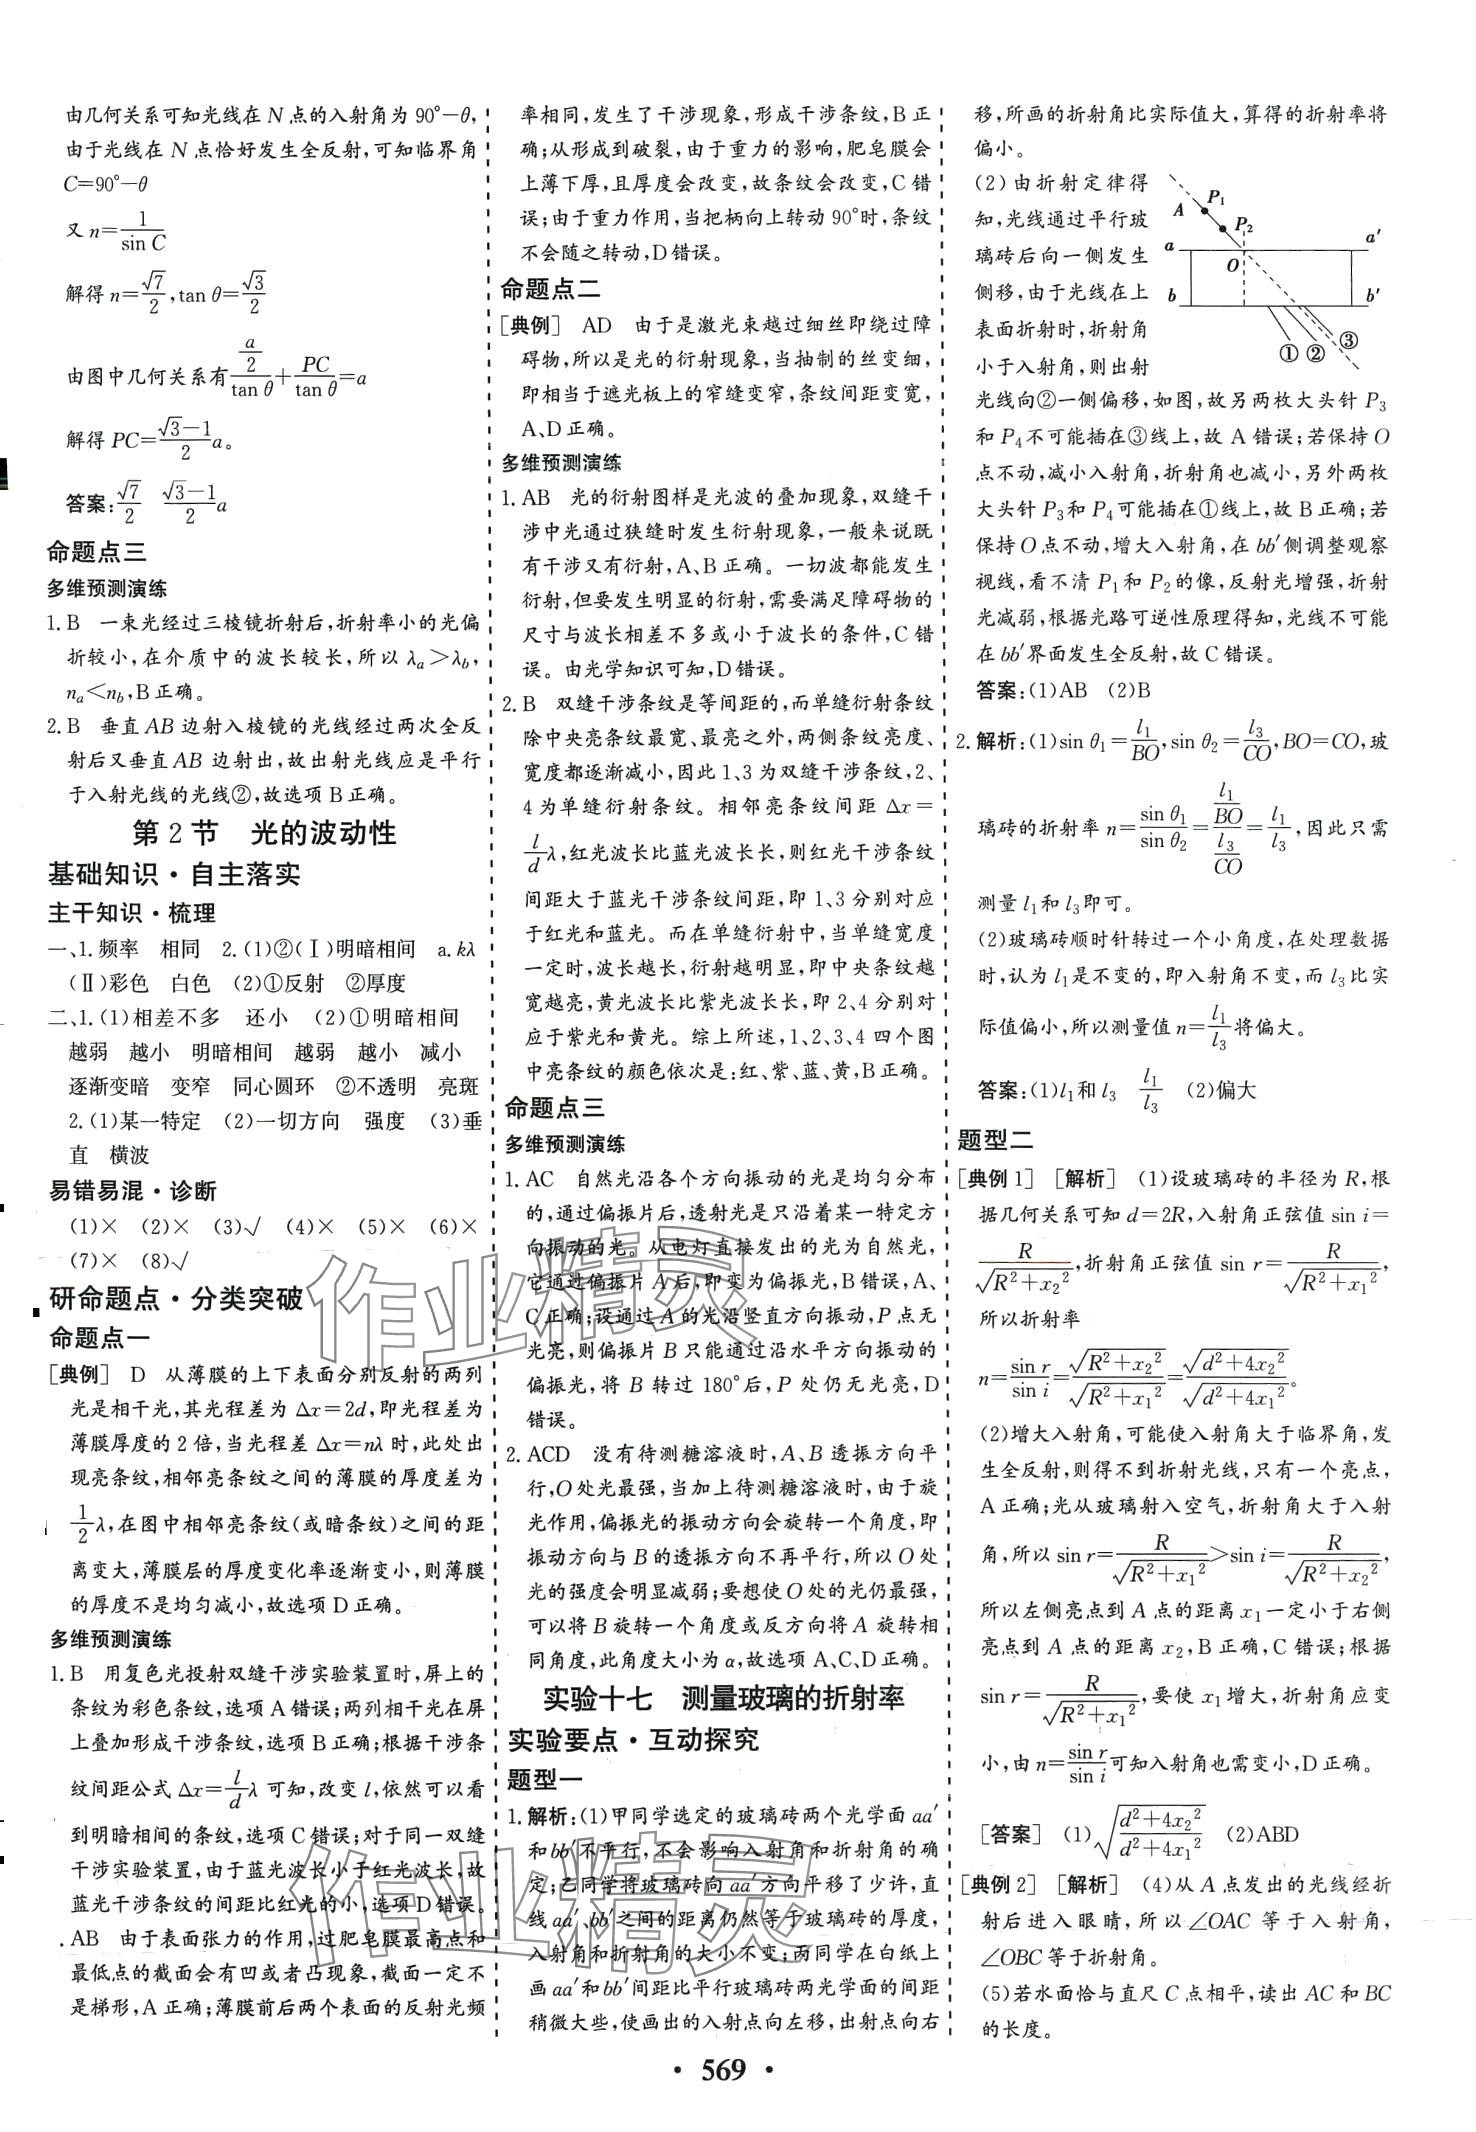 由几何关系可知光线在 N 点的入射角为 90°-θ,
由于光线在 N 点恰好发生全反射,可知临界角
C=90°-θ
又 n=1/sin C
解得 n=√7/2,tan θ=√3/2
由图中几何关系有 (a/2)/tan θ+PC/tan θ=a
解得 PC=(√3-1)/2 a。
答案:√7/2 (√3-1)/2 a
命题点三
多维预测演练
1. B 一束光经过三棱镜折射后,折射率小的光偏
折较小,在介质中的波长较长,所以 λa>λb,
na<nb,B正确。
2. B 垂直AB边射入棱镜的光线经过两次全反
射后又垂直AB边射出,故出射光线应是平行
于入射光线的光线②,故选项B正确。
第2节 光的波动性
基础知识·自主落实
主干知识·梳理
一、1.频率 相同 2.(1)②(Ⅰ)明暗相间 a.kλ
(Ⅱ)彩色 白色 (2)①反射 ②厚度
二、1.(1)相差不多 还小 (2)①明暗相间
越弱 越小 明暗相间 越弱 越小 减小
逐渐变暗 变窄 同心圆环 ②不透明 亮斑
2.(1)某一特定 (2)一切方向 强度 (3)垂
直 横波
易错易混·诊断
(1)× (2)× (3)√ (4)× (5)× (6)×
(7)× (8)√
研命题点·分类突破
命题点一
[典例] D 从薄膜的上下表面分别反射的两列
光是相干光,其光程差为 Δx=2d,即光程差为
薄膜厚度的2倍,当光程差 Δx=nλ 时,此处出
现亮条纹,相邻亮条纹之间的薄膜的厚度差为
1/2 λ,在图中相邻亮条纹(或暗条纹)之间的距
离变大,薄膜层的厚度变化率逐渐变小,则薄膜
的厚度不是均匀减小,故选项D正确。
多维预测演练
1. B 用复色光投射双缝干涉实验装置时,屏上的
条纹为彩色条纹,选项A错误;两列相干光在屏
上叠加形成干涉条纹,选项B正确;根据干涉条
纹间距公式 Δx=l/d λ 可知,改变 l,依然可以看
到明暗相间的条纹,选项C错误;对于同一双缝
干涉实验装置,由于蓝光波长小于红光波长,故
蓝光干涉条纹的间距比红光的小,选项D错误。
. AB 由于表面张力的作用,过肥皂膜最高点和
最低点的截面会有凹或者凸现象,截面一定不
是梯形,A正确;薄膜前后两个表面的反射光频
率相同,发生了干涉现象,形成干涉条纹,B正
确;从形成到破裂,由于重力的影响,肥皂膜会
上薄下厚,且厚度会改变,故条纹会改变,C错
误;由于重力作用,当把柄向上转动90°时,条纹
不会随之转动,D错误。
命题点二
[典例] AD 由于是激光束越过细丝即绕过障
碍物,所以是光的衍射现象,当抽制的丝变细,
即相当于遮光板上的窄缝变窄,条纹间距变宽,
A、D正确。
多维预测演练
1. AB 光的衍射图样是光波的叠加现象,双缝干
涉中光通过狭缝时发生衍射现象,一般来说既
有干涉又有衍射,A、B正确。一切波都能发生
衍射,但要发生明显的衍射,需要满足障碍物的
尺寸与波长相差不多或小于波长的条件,C错
误。由光学知识可知,D错误。
2. B 双缝干涉条纹是等间距的,而单缝衍射条纹
除中央亮条纹最宽、最亮之外,两侧条纹亮度、
宽度都逐渐减小,因此1、3为双缝干涉条纹,2、
4为单缝衍射条纹。相邻亮条纹间距 Δx=
l/d λ,红光波长比蓝光波长长,则红光干涉条纹
间距大于蓝光干涉条纹间距,即1、3分别对应
于红光和蓝光。而在单缝衍射中,当单缝宽度
一定时,波长越长,衍射越明显,即中央条纹越
宽越亮,黄光波长比紫光波长长,即2、4分别对
应于紫光和黄光。综上所述,1、2、3、4四个图
中亮条纹的颜色依次是:红、紫、蓝、黄,B正确。
命题点三
多维预测演练
1. AC 自然光沿各个方向振动的光是均匀分布
的,通过偏振片后,透射光是只沿着某一特定方
向振动的光。从电灯直接发出的光为自然光,
它通过偏振片A后,即变为偏振光,B错误,A、
C正确;设通过A的光沿竖直方向振动,P点无
光亮,则偏振片B只能通过沿水平方向振动的
偏振光,将B转过180°后,P处仍无光亮,D
错误。
2. ACD 没有待测糖溶液时,A、B透振方向平
行,O处光最强,当加上待测糖溶液时,由于旋
光作用,偏振光的振动方向会旋转一个角度,即
振动方向与B的透振方向不再平行,所以O处
光的强度会明显减弱;要想使O处的光仍最强,
可以将B旋转一个角度或反方向将A旋转相
同角度,此角度大小为α,故选项A、C、D正确。
实验十七 测量玻璃的折射率
实验要点·互动探究
题型一
1. 解析:(1)甲同学选定的玻璃砖两个光学面aa′
和bb′不平行,不会影响入射角和折射角的确
定;乙同学将玻璃砖向aa′方向平移了少许,直
线aa′、bb′之间的距离仍然等于玻璃砖的厚度,
入射角和折射角的大小不变;两同学在白纸上
画aa′和bb′间距比平行玻璃砖两光学面的间距
稍微大些,使画出的入射点向左移,出射点向右
移,所画的折射角比实际值大,算得的折射率将
偏小。
(2)由折射定律得
知,光线通过平行玻
璃砖后向一侧发生
侧移,由于光线在上
表面折射时,折射角
小于入射角,则出射
A P1 P2
a a′ O
b b′
① ② ③
光线向②一侧偏移,如图,故另两枚大头针P3
和P4不可能插在③线上,故A错误;若保持O
点不动,减小入射角,折射角也减小,另外两枚
大头针P3和P4可能插在①线上,故B正确;若
保持O点不动,增大入射角,在bb′侧调整观察
视线,看不清P1和P2的像,反射光增强,折射
光减弱,根据光路可逆性原理得知,光线不可能
在bb′界面发生全反射,故C错误。
答案:(1)AB (2)B
2. 解析:(1)sin θ1=l1/BO,sin θ2=l3/CO,BO=CO,玻
璃砖的折射率 n=sin θ1/sin θ2=(l1/BO)/(l3/CO)=l1/l3,因此只需
测量 l1和 l3即可。
(2)玻璃砖顺时针转过一个小角度,在处理数据
时,认为 l1是不变的,即入射角不变,而 l3比实
际值偏小,所以测量值 n=l1/l3将偏大。
答案:(1)l1和 l3 l1/l3 (2)偏大
题型二
[典例1] [解析] (1)设玻璃砖的半径为R,根
据几何关系可知 d=2R,入射角正弦值 sin i=
R/√(R²+x2²),折射角正弦值 sin r=R/√(R²+x1²),
所以折射率
n=sin r/sin i=√(R²+x2²)/√(R²+x1²)=√(d²+4x2²)/√(d²+4x1²)。
(2)增大入射角,可能使入射角大于临界角,发
生全反射,则得不到折射光线,只有一个亮点,
A正确;光从玻璃射入空气,折射角大于入射
角,所以 sin r=R/√(R²+x1²)>sin i=R/√(R²+x2²),
所以左侧亮点到A点的距离x1一定小于右侧
亮点到A点的距离x2,B正确,C错误;根据
sin r=R/√(R²+x1²),要使x1增大,折射角应变
小,由 n=sin r/sin i可知入射角也需变小,D正确。
[答案] (1)√((d²+4x2²)/(d²+4x1²)) (2)ABD
[典例2] [解析] (4)从A点发出的光线经折
射后进入眼睛,所以∠OAC等于入射角,
∠OBC等于折射角。
(5)若水面恰与直尺C点相平,读出AC和BC
的长度。
作业精灵
作业精灵
· 569 ·